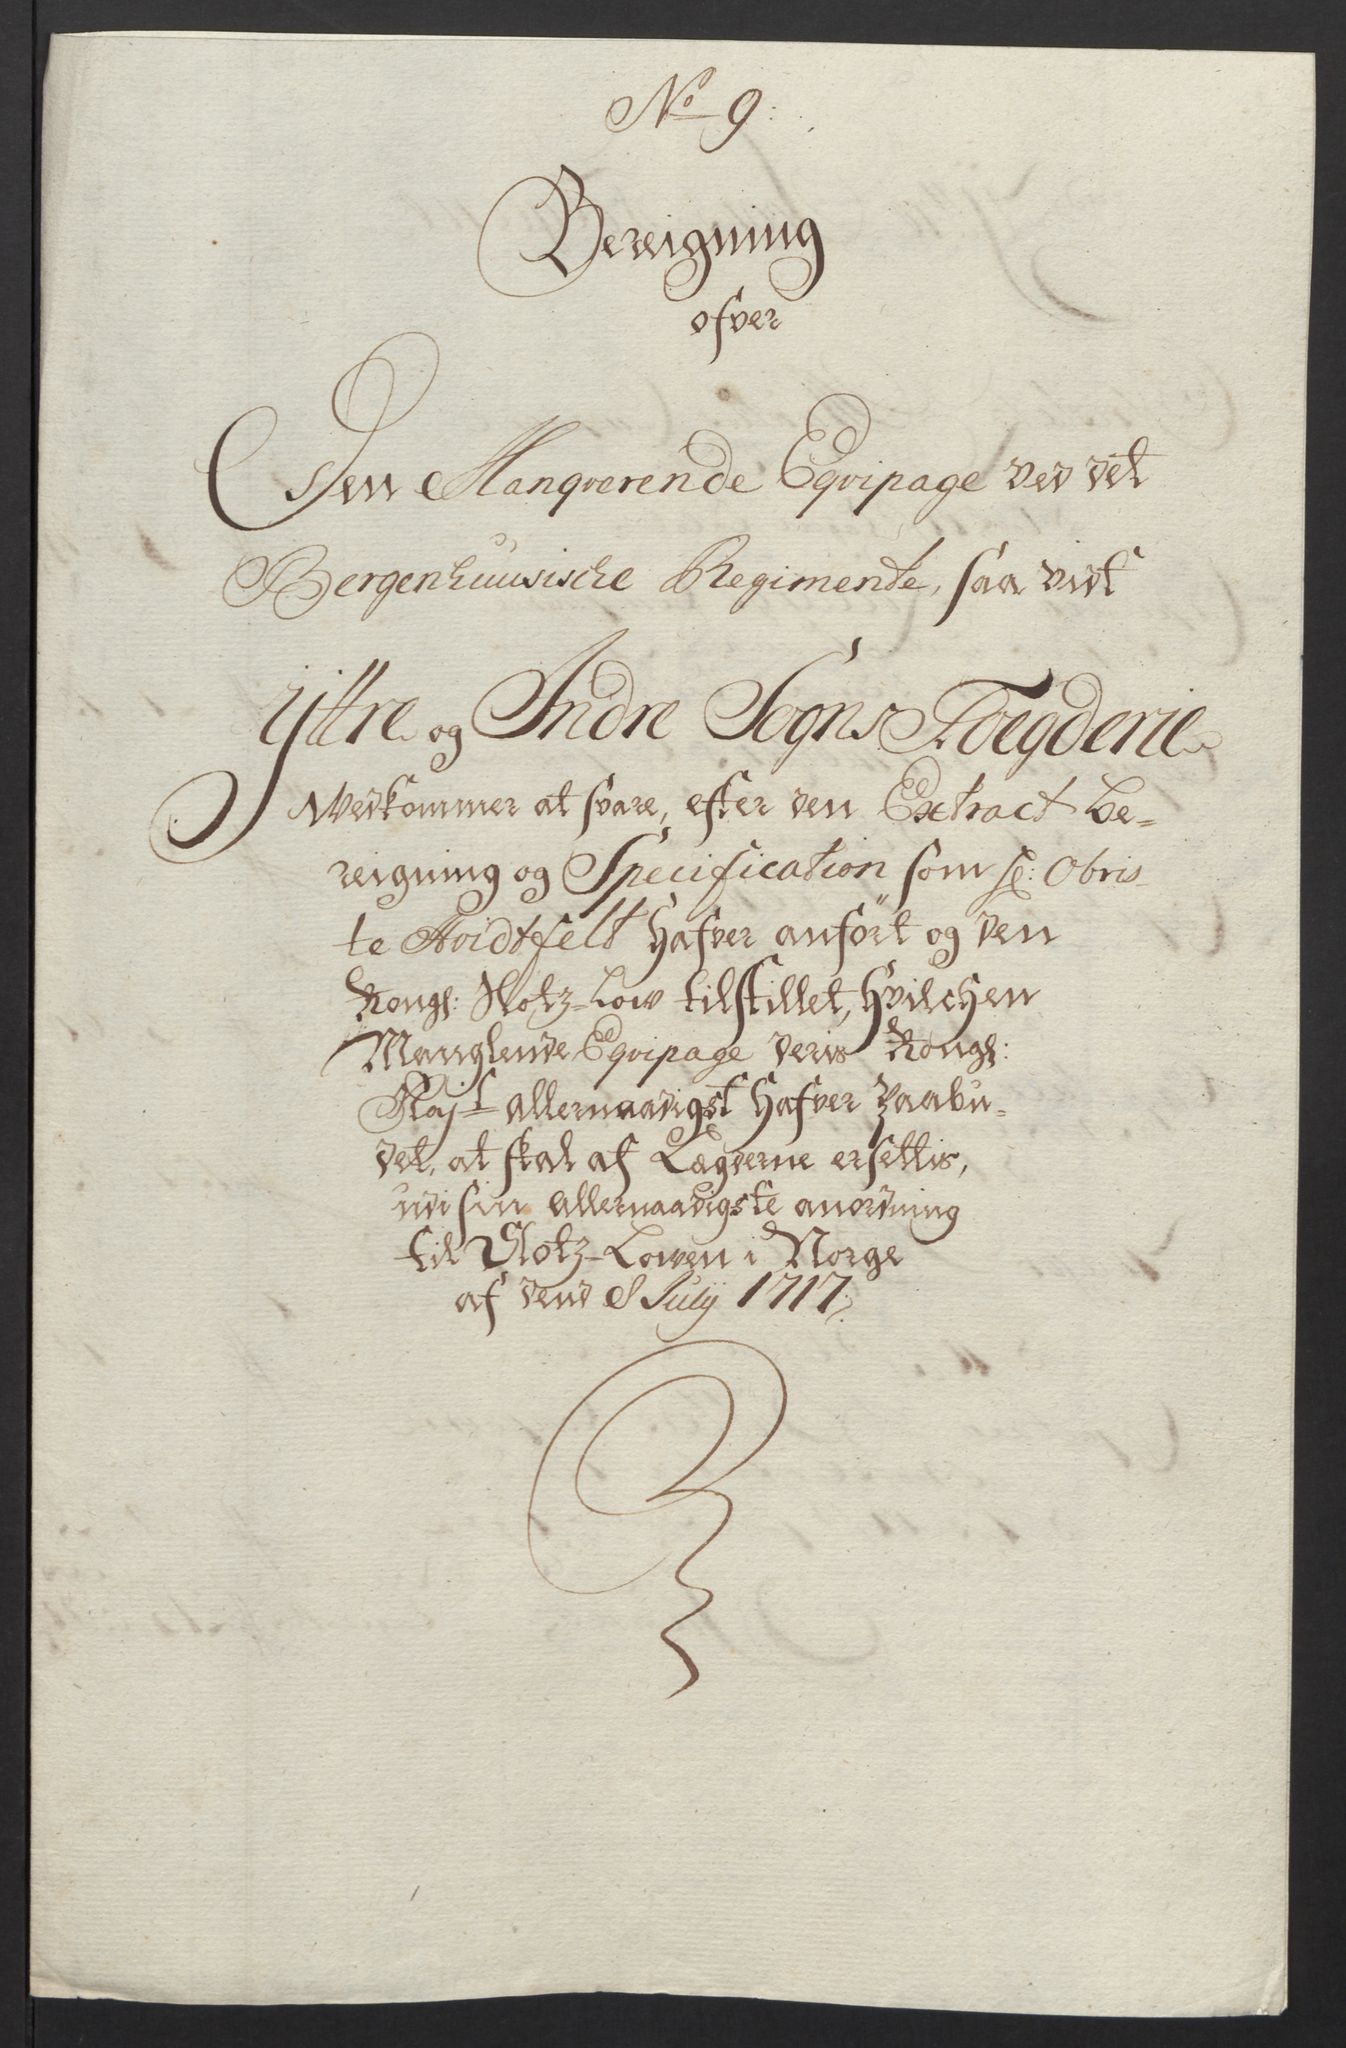 No 9:
Bereigning
ofver
Den Manqverende Eqvipage ved det
Bergenhuusische Regimente, saa vidt
Yttre og Indre Sogns Foegderie
Vedkommer at svare, efter den Extract be=
reigning og Specification som hr: Obris-
te Hvidtfelt hafver anfört og den
Kongl: Slotz-Low tilstillet, hvilchen
Manglende Eqvipage deris Kongl:
May:t allernaadigst hafver paabu-
det, at skal af Lægderne ersettis,
udi sin allernaadigste anordning
til Slotz-Lowen i Norge
af dend 8 July 1717.